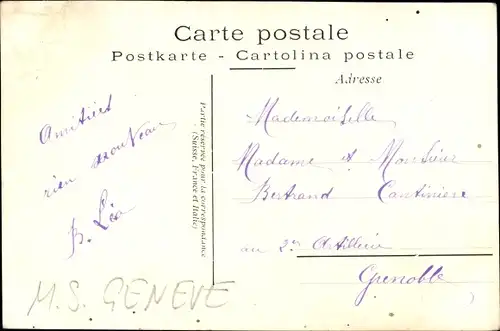 Carte postale
Postkarte - Cartolina postale
Adresse
Partie réservée pour la correspondance
(Suisse, France et Italie)
Amitiés
rien nouveau
B. Léa
M.S. GENEVE
Mademoiselle
Madame et Monsieur
Bertrand Cantiniere
au 2me Artillerie
Grenoble